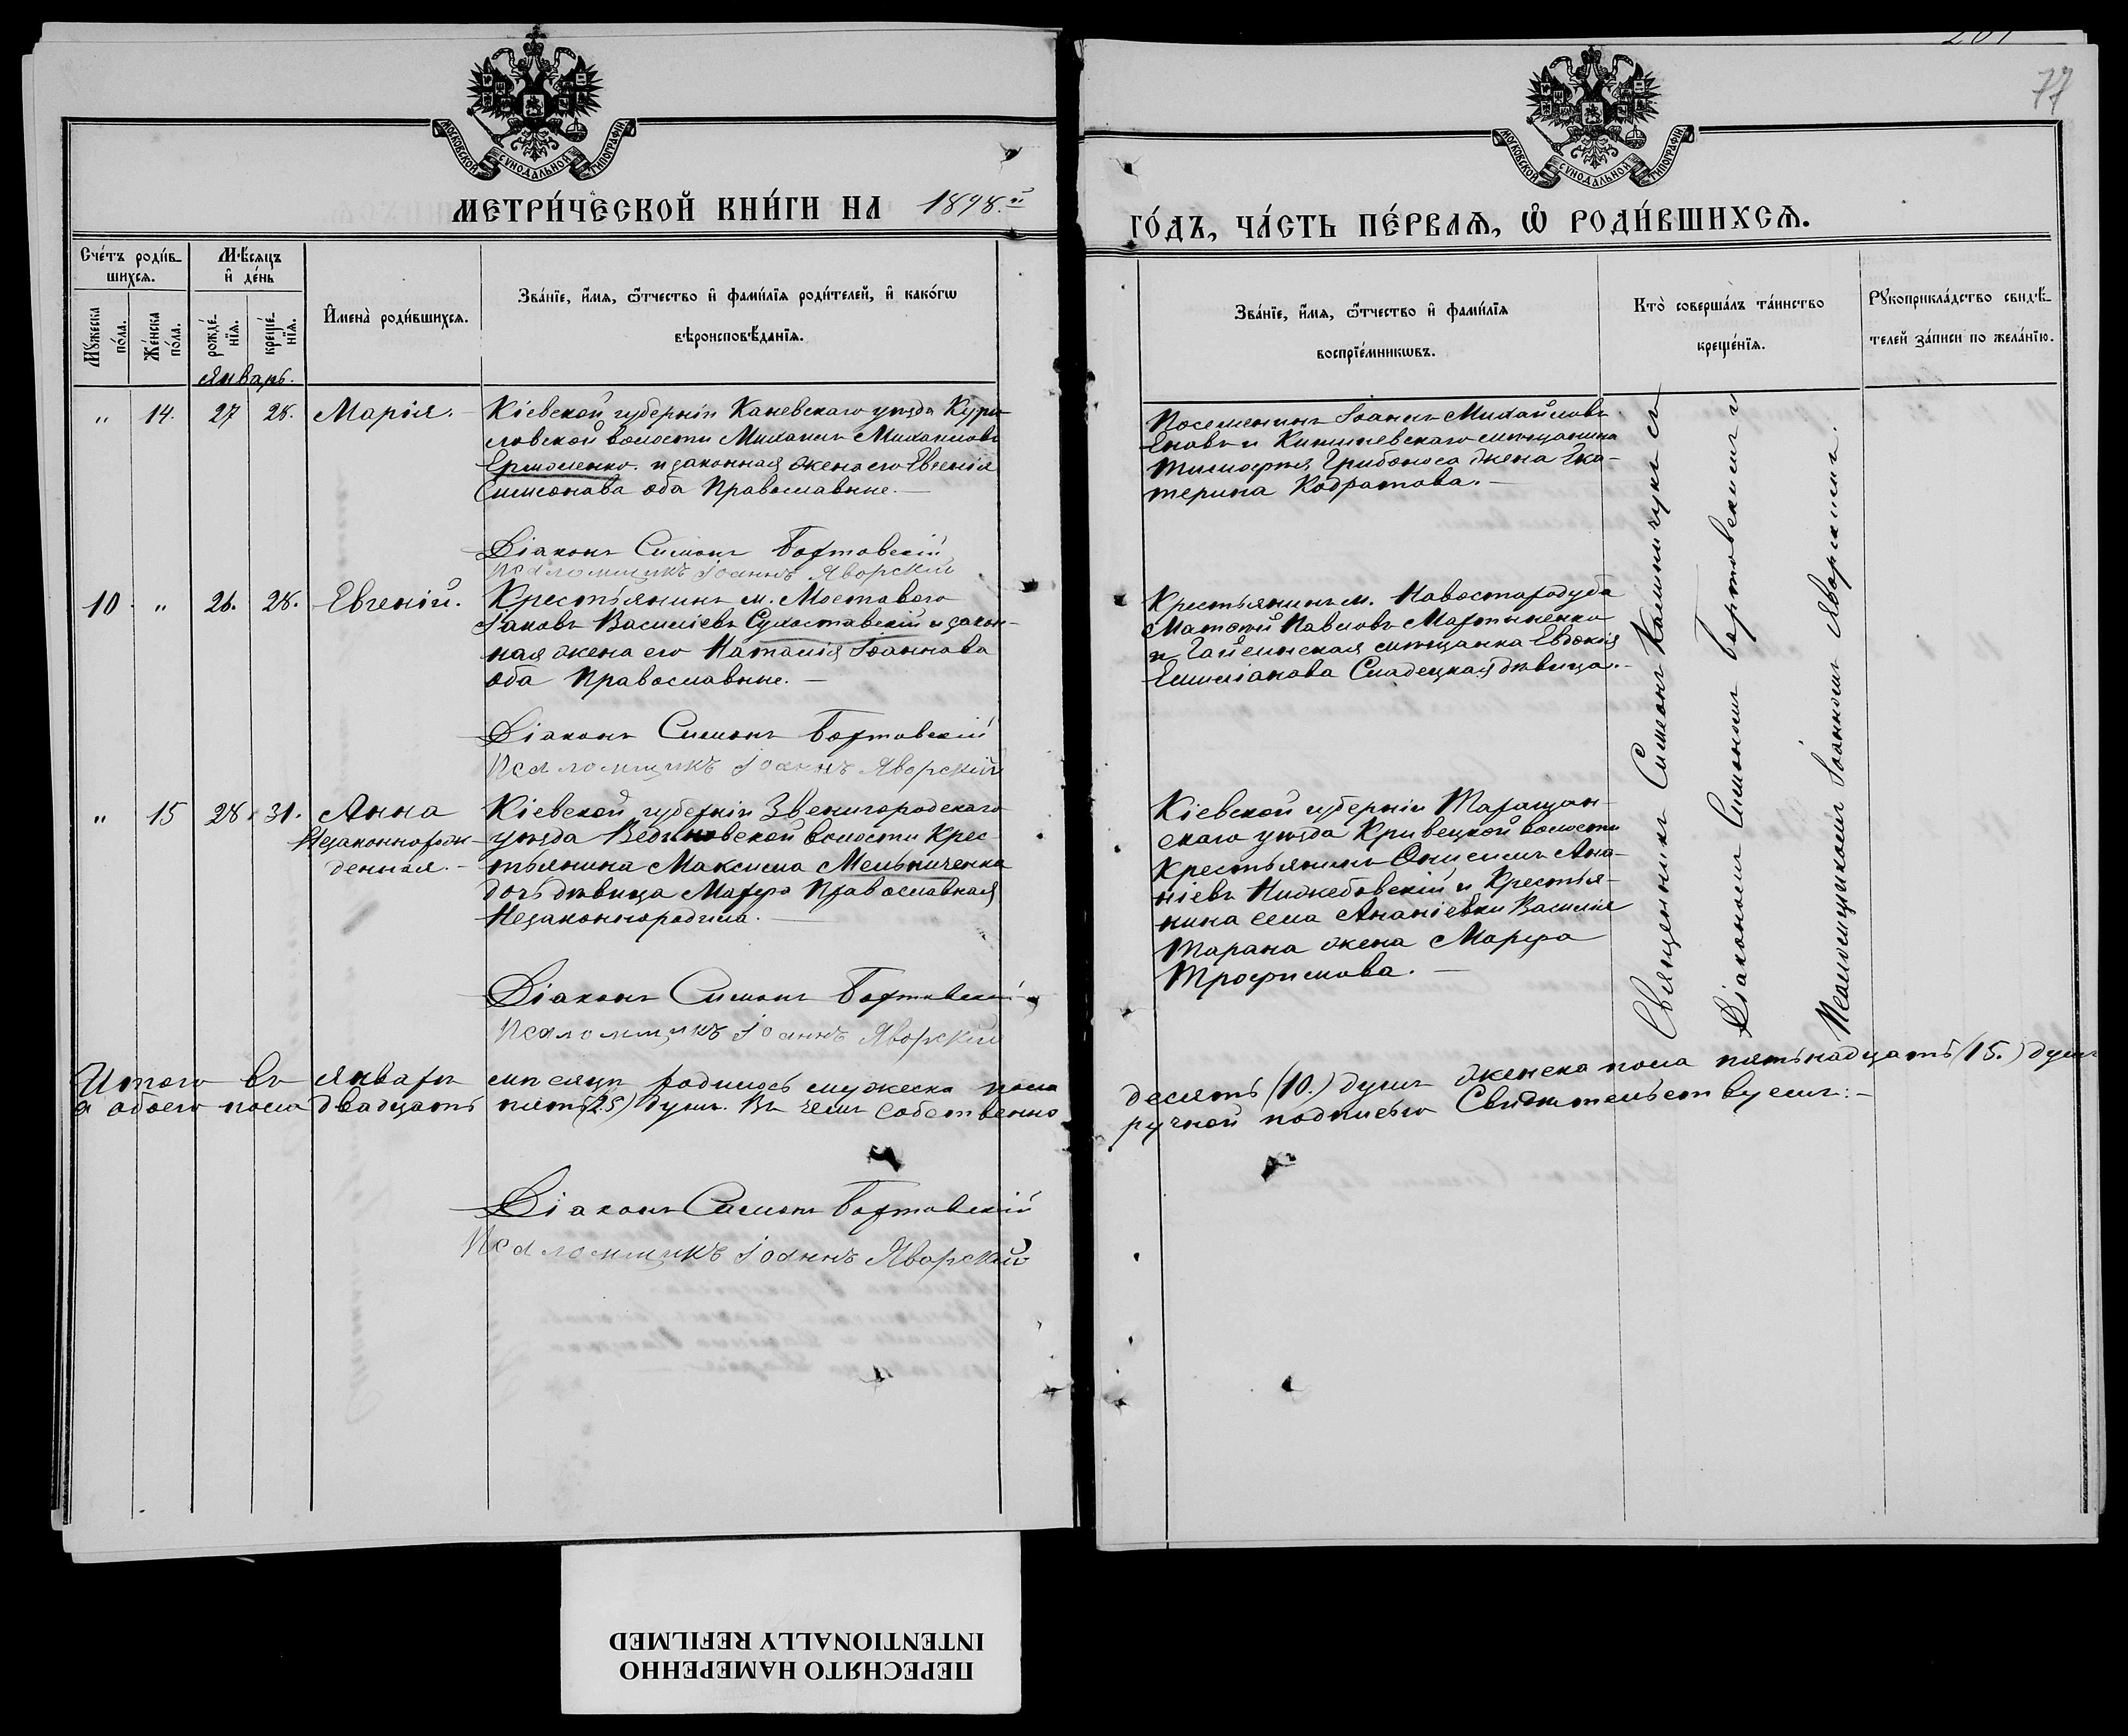 77
МОСКОВСКОЙ СѴНОДАЛЬНОЙ ТИПОГРАФІИ
МОСКОВСКОЙ СѴНОДАЛЬНОЙ ТИПОГРАФІИ
МЕТРИ́ЧЕСКОЙ КНИ́ГИ НА 1898.й
ГО́ДЪ, ЧА́СТЬ ПЕ́РВАѦ, Ѡ҆ РОДИ́ВШИХСѦ.
Сче́тъ роди́в-
шихсѧ.
Мꙋ́жеска по́ла.
Же́нска по́ла.
Мѣ́сѧцъ
и҆ де́нь
рожде́-нїѧ.
креще́-нїѧ.
Январь.
И҆мена̀ роди́вшихсѧ.
Зва́нїе, и҆́мѧ, ѻ҆́тчество и҆ фами́лїѧ роди́телей, и҆ како́гѡ
вѣроисповѣ́данїѧ.
Зва́нїе, и҆́мѧ, ѻ҆́тчество и҆ фами́лїѧ
воспрїе́мникѡвъ.
Кто̀ соверша́лъ та́инство
креще́нїѧ.
Рꙋкоприкла́дство свидѣ́-
телей за́писи по жела́нїю.
„ 14. 27 28. Марія.
Кіевской губерніи Каневскаго уѣзда Кури-
ловской волости Михаилъ Михаиловъ
Ермоленко и законная жена его Евгенія
Симеонова оба Православные.
Діаконъ Симонъ Бортовскій
Псаломщикъ Іоаннъ Яворскій
Поселенинъ Іоаннъ Михайловъ
и Кишиневскаго мѣщанина
Тимофея Грибоноса жена Ека-
терина Кодратова.
10. „ 26. 28. Евгеній.
Крестьянинъ м. Мостового
Іаковъ Василіевъ Сухоставскій и закон-
ная жена его Наталія Іоаннова
оба Православные.
Діаконъ Симонъ Бортовскій
Псаломщикъ Іоаннъ Яворскій
Крестьянинъ м. Новостародуба
Матѳей Павловъ Мартыненко
и Гайсинская мѣщанка Евдокія
Емиліанова Сладецкая дѣвица.
„ 15 28 31. Анна
Незаконнорож-
денная.
Кіевской губерніи Звенигородскаго
уѣзда волости Крес-
тьянина Максима Мельниченка
дочь дѣвица Марфа Православная
Незаконнородила.
Діаконъ Симонъ Бортовскій
Псаломщикъ Іоаннъ Яворскій
Кіевской губерніи Таращан-
скаго уѣзда Кривецкой волости
Крестьянинъ Онисимъ Ана-
ніевъ и Крестья-
нина села Ананіевки Василія
Тарана жена Марфа
Трофимова.
Священникъ Симеонъ Калиничукъ съ
Діакономъ Симономъ Бортовскимъ и
Псаломщикомъ Іоанномъ Яворскимъ.
Итого въ январѣ мѣсяцѣ родилось мужеска пола
десять (10.) душъ женска пола пятьнадцать (15.) душъ
а обоего пола двадцать пять (25) душъ. Въ чемъ собственно
ручной подписью Свидѣтельствуемъ:
Діаконъ Симонъ Бортовскій
Псаломщикъ Іоаннъ Яворскій
ПЕРЕСНЯТО НАМЕРЕННО
INTENTIONALLY REFILMED